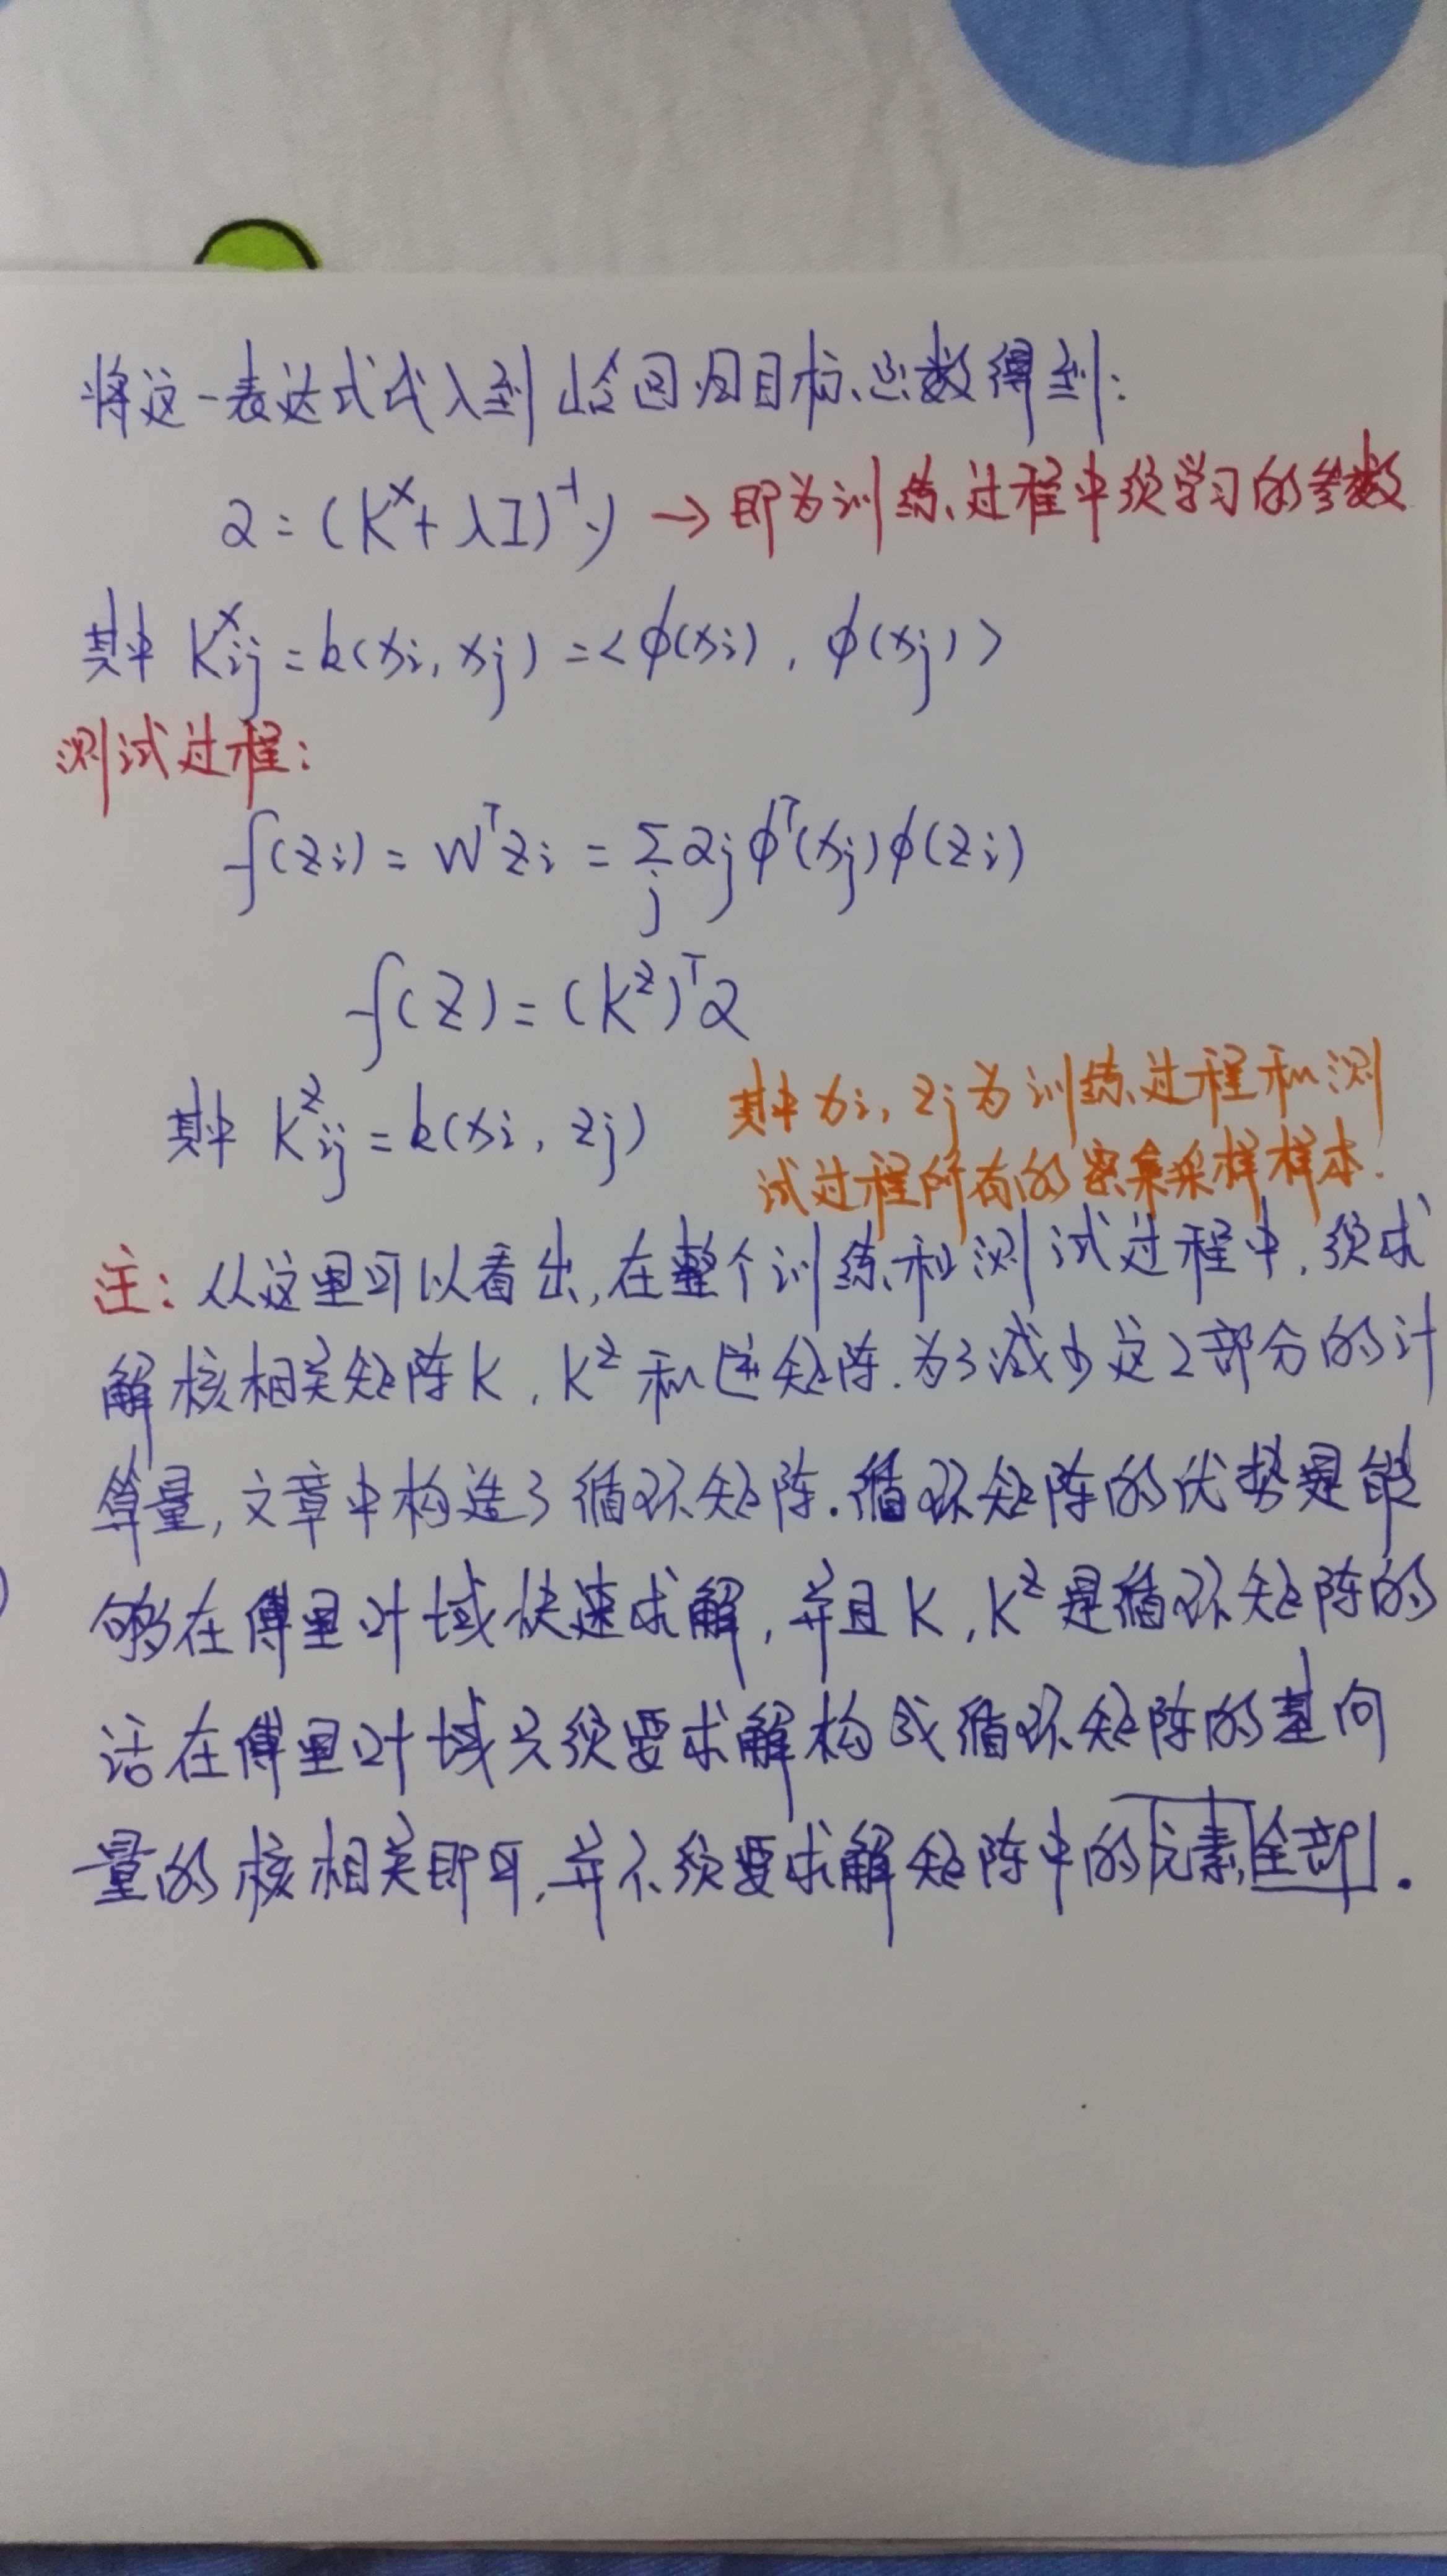 将这一表达式代入到岭回归目标函数得到:
α = (K^x + λI)^-1 y → 即为训练过程中须学习的参数
其中 K^x_ij = k(xi, xj) = <φ(xi), φ(xj)>
测试过程:
f(zi) = W^T zi = Σ_j αj φ^T(xj) φ(zi)
f(Z) = (K^z)^T α
其中 K^z_ij = k(xi, zj)
其中 xi, zj 为训练过程和测
试过程所有的密集采样样本.
注: 从这里可以看出, 在整个训练和测试过程中, 须求
解核相关矩阵K, K^z 和逆矩阵. 为了减少这2部分的计
算量, 文章中构造了循环矩阵. 循环矩阵的优势是能
够在傅里叶域快速求解, 并且 K, K^z 是循环矩阵的
话在傅里叶域只须要求解构成循环矩阵的基向
量的核相关即可, 并不须要求解矩阵中的元素全部.